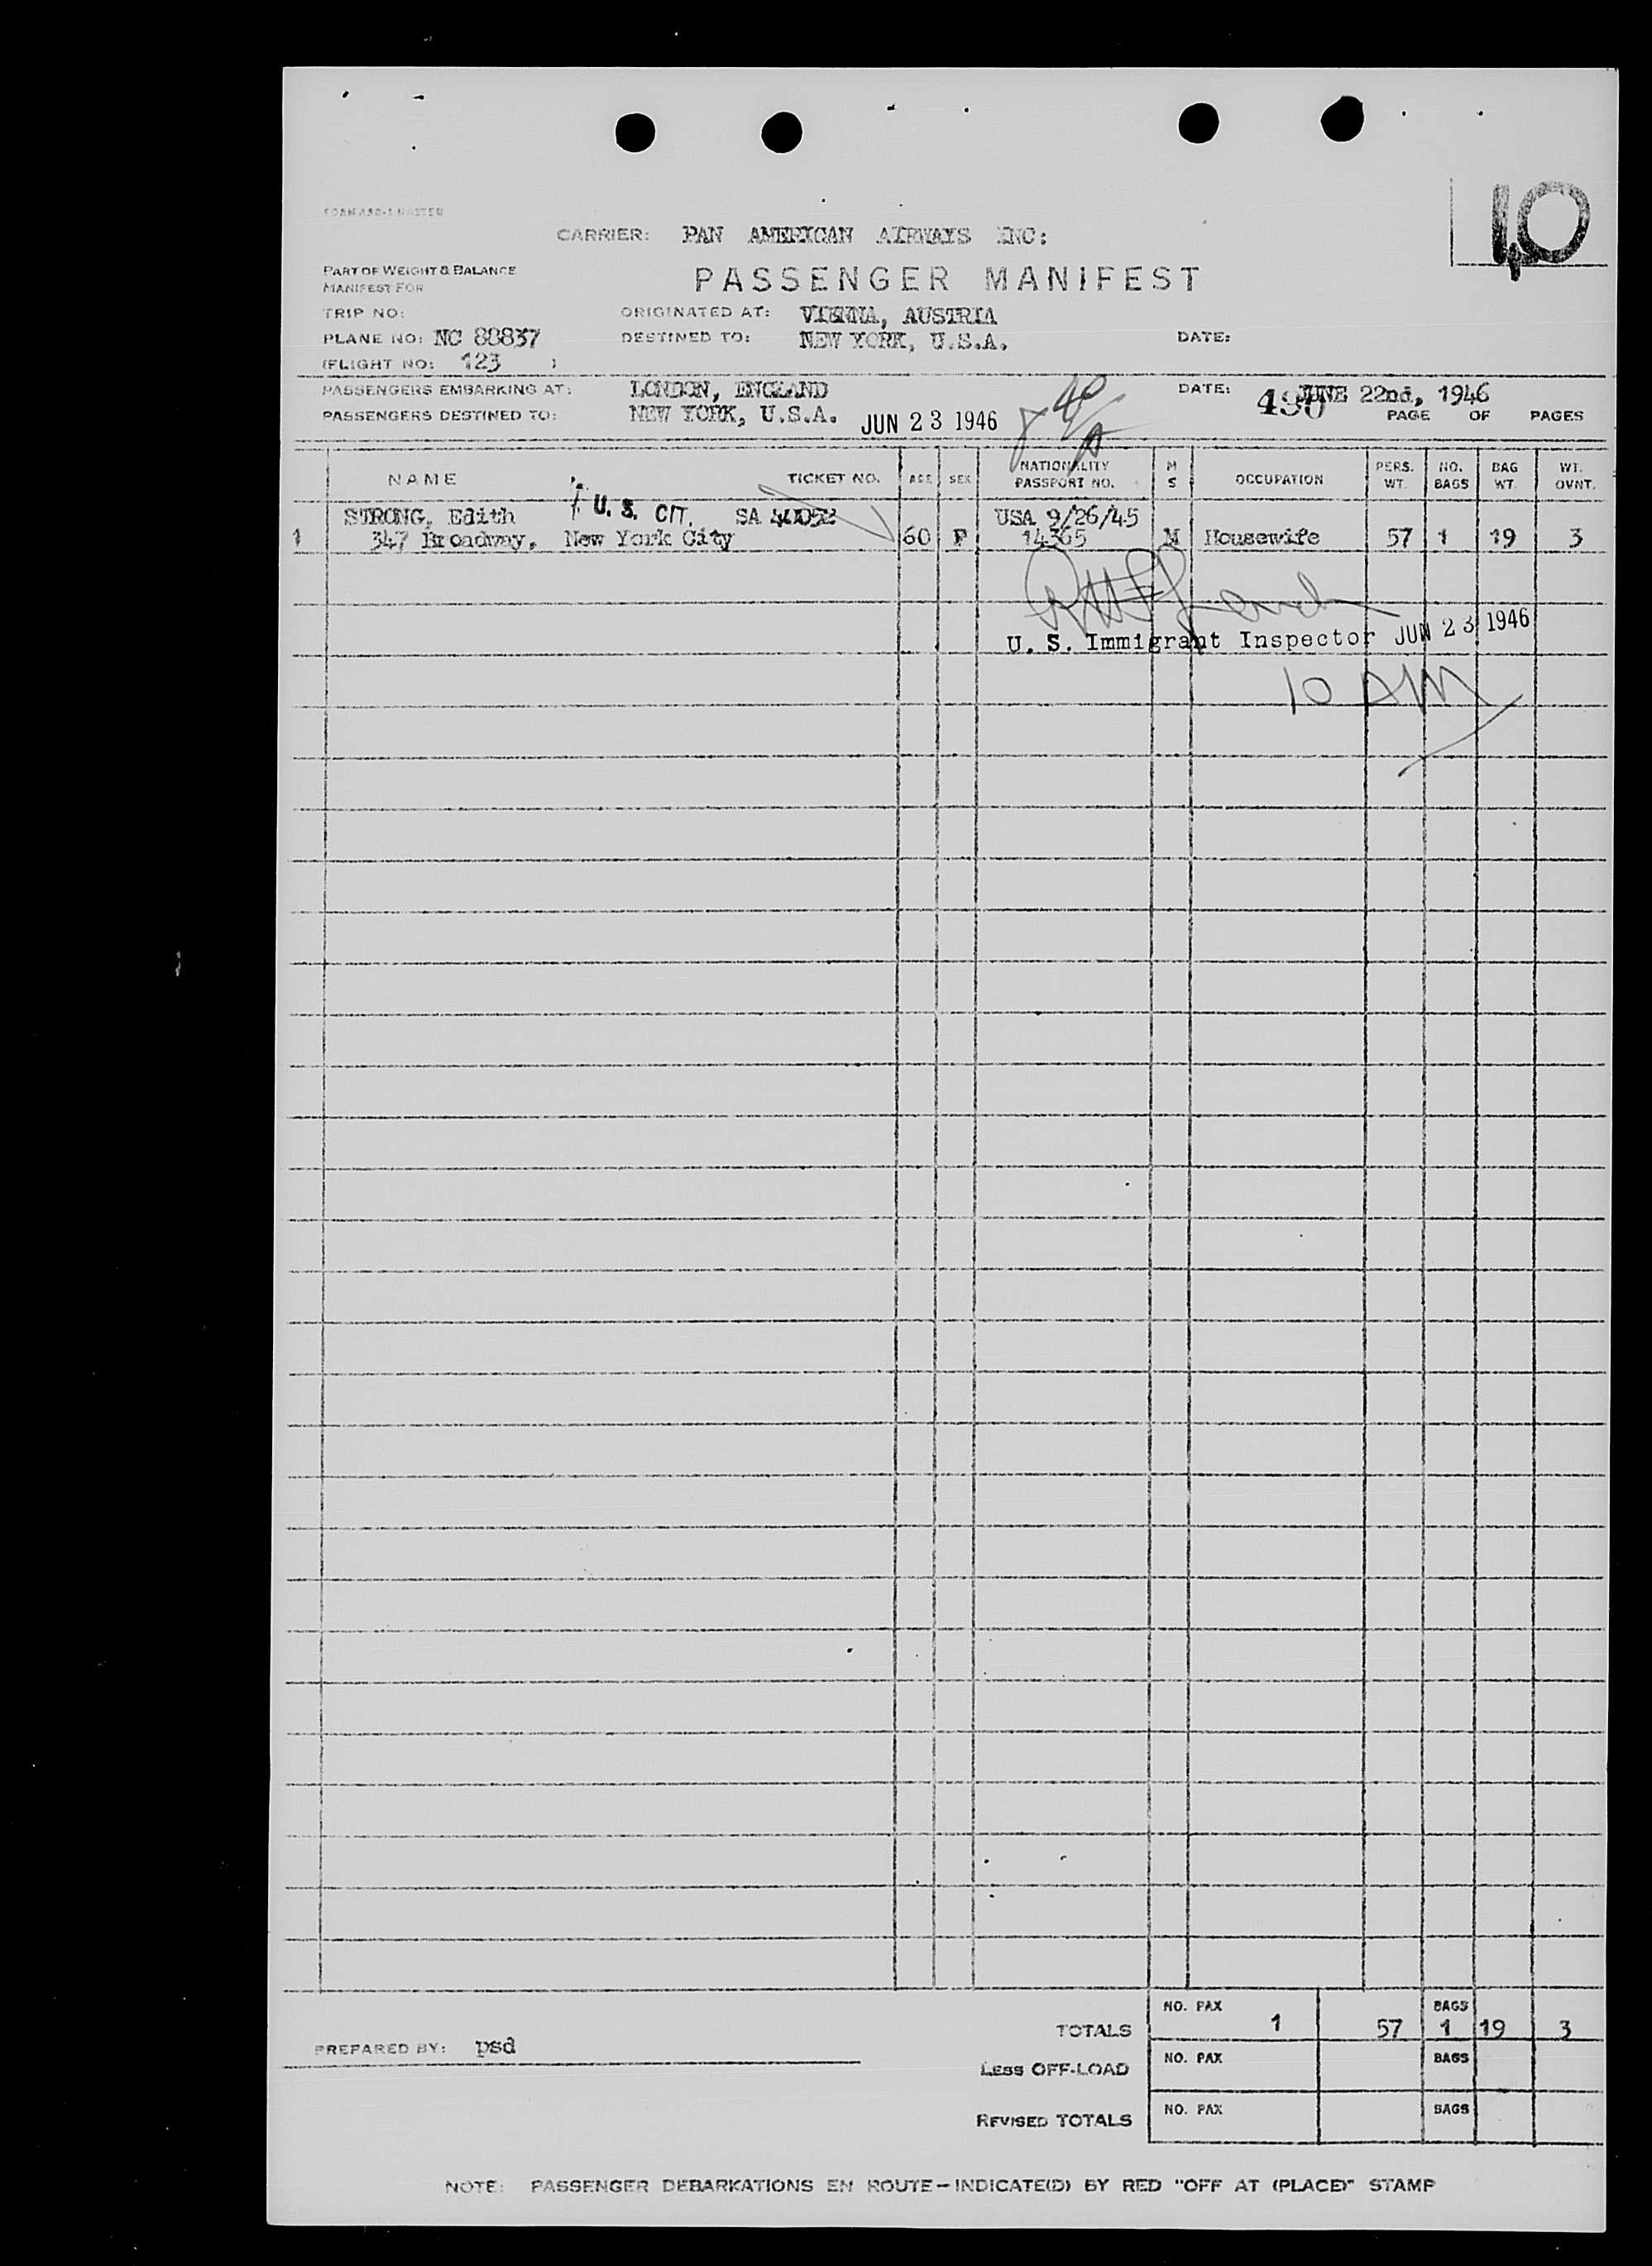 FORM 238-1 MASTER
40
CARRIER: PAN AMERICAN AIRWAYS INC:
PART OF WEIGHT & BALANCE
MANIFEST FOR
PASSENGER MANIFEST
TRIP NO: ORIGINATED AT: VIENNA, AUSTRIA
PLANE NO: NC 88837 DESTINED TO: NEW YORK, U.S.A. DATE:
(FLIGHT NO: 123 )
PASSENGERS EMBARKING AT: LONDON, ENGLAND DATE: JUNE 22nd, 1946
PASSENGERS DESTINED TO: NEW YORK, U.S.A. JUN 23 1946 490 PAGE OF PAGES
NAME TICKET NO. AGE SEX NATIONALITY PASSPORT NO. M S OCCUPATION PERS. WT. NO. BAGS BAG WT. WT. OVNT.
STRONG, Edith U. S. CIT. SA 44052 USA 9/26/45
1 347 Broadway, New York City 60 F 14365 M Housewife 57 1 19 3
U. S. Immigrant Inspector JUN 23 1946
10 AM
TOTALS NO. PAX 1 57 BAGS 1 19 3
PREPARED BY: psd
LESS OFF-LOAD NO. PAX BAGS
REVISED TOTALS NO. PAX BAGS
NOTE: PASSENGER DEBARKATIONS EN ROUTE—INDICATE(D) BY RED "OFF AT (PLACE)" STAMP